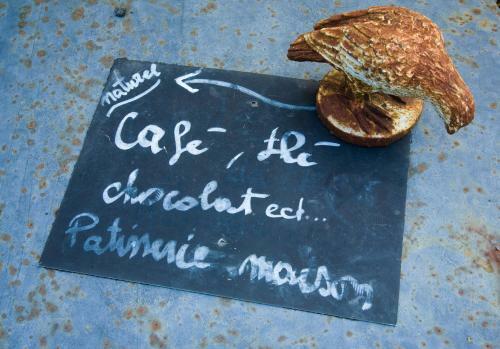 naturel
Café, thé
chocolat ect...
Patisserie maison